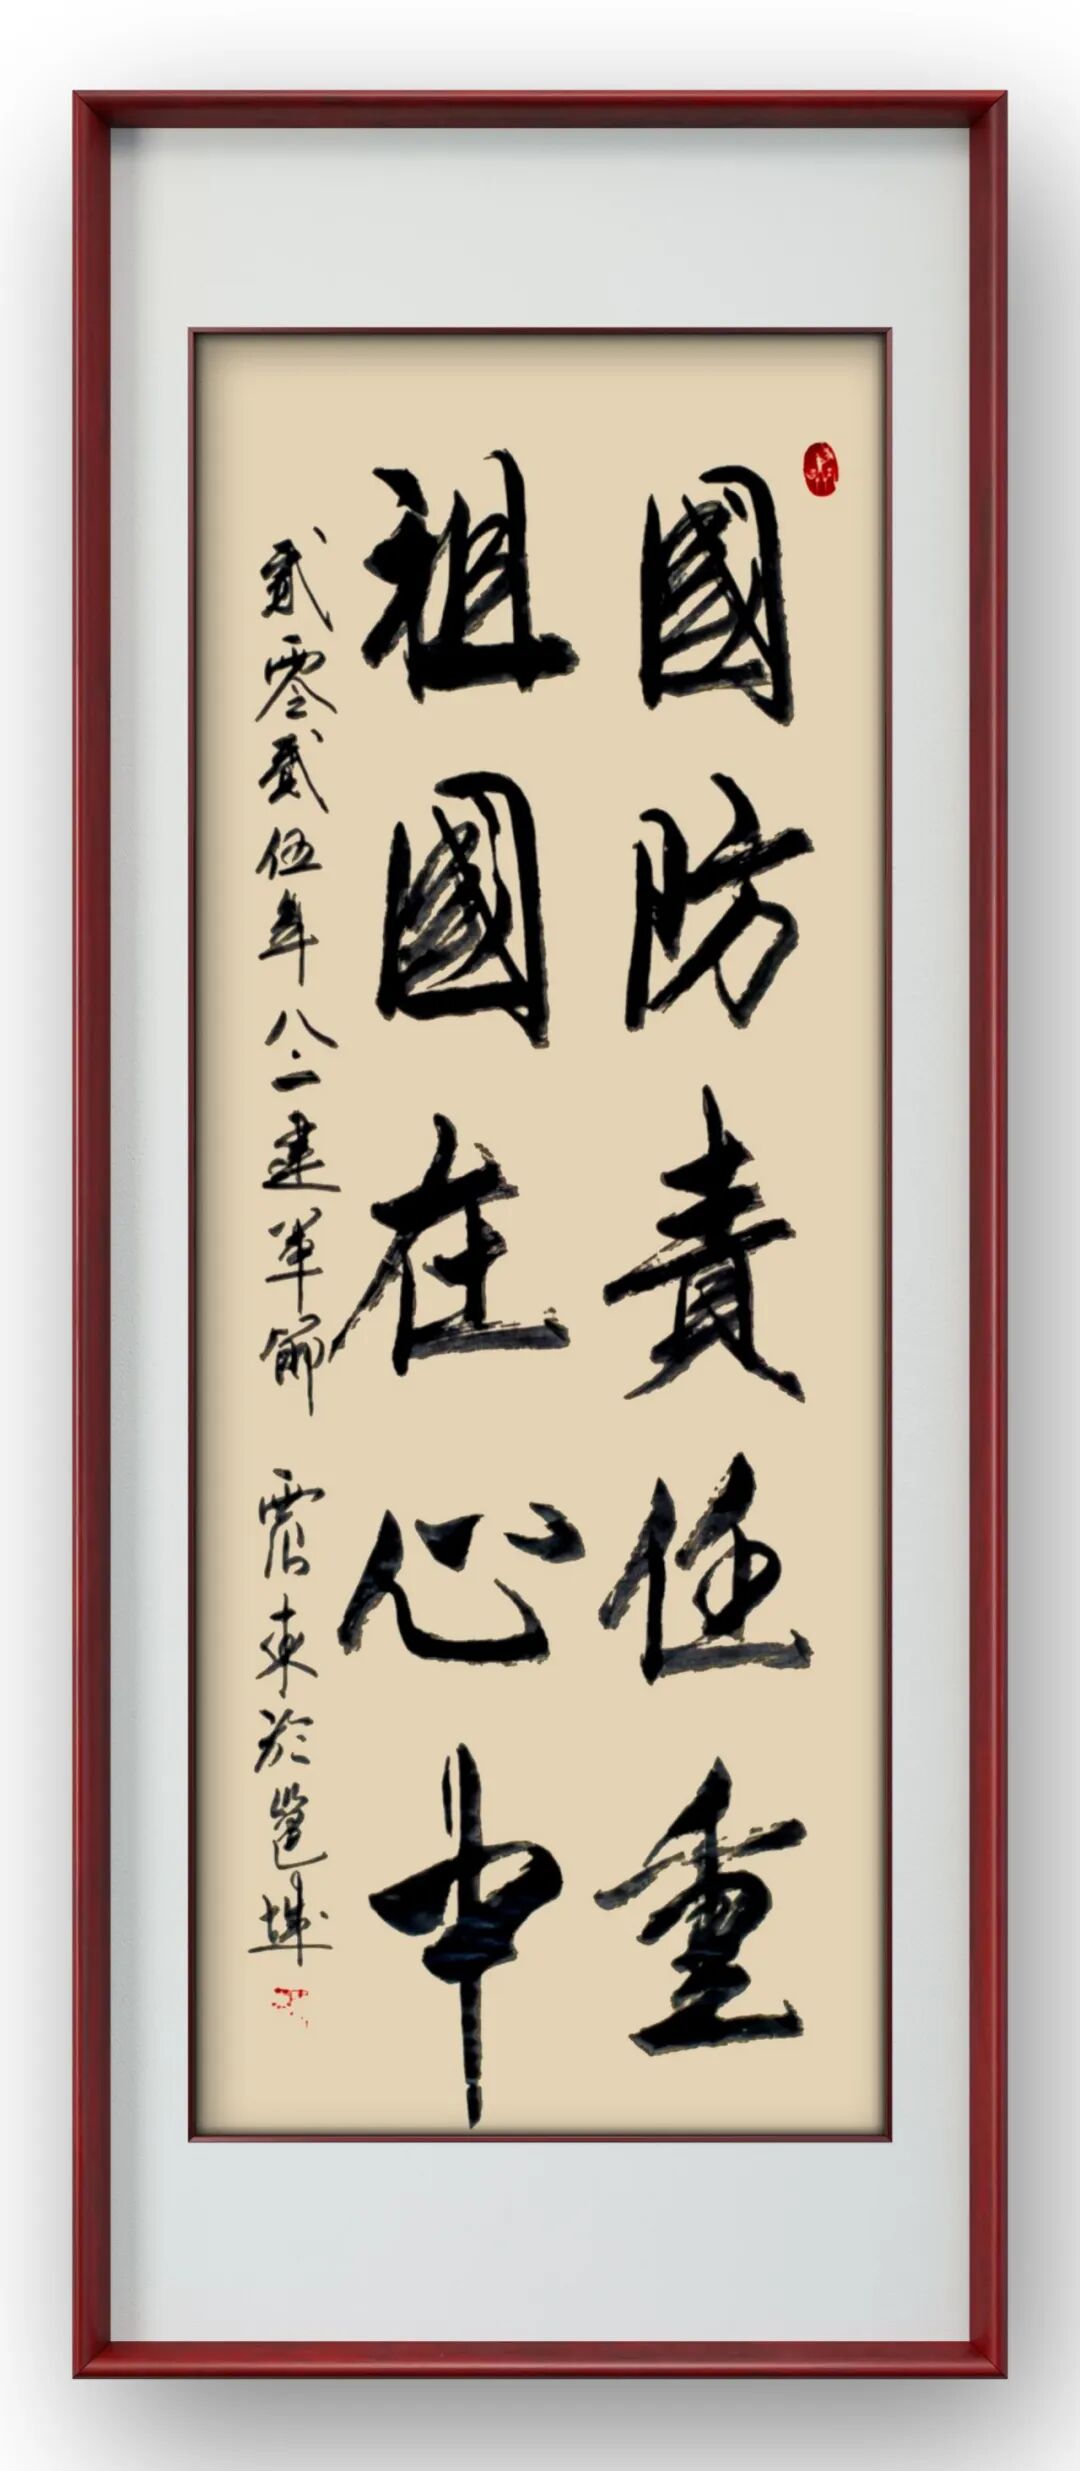 國防責任重
祖國在心中
貳零貳伍年八一建軍節 震東於邕城